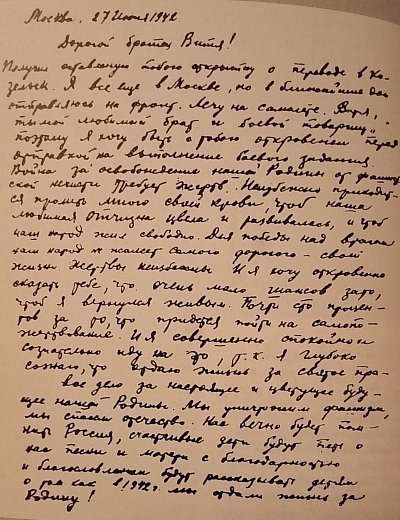 Москва. 27 июня 1942.
Дорогой братец Витя!
Получил оставленную тобою открытку о переводе в Ко-
зельск. Я все еще в Москве, но в ближайшие дни
отправляюсь на фронт. Лечу на самолете. Витя,
ты мой любимый брат и боевой товарищ,
поэтому я хочу быть с тобою откровенен перед
отправкой на выполнение боевого задания.
Война за освобождение нашей Родины от фашист-
ской нечисти требует жертв. Неизбежно приходит-
ся пролить много своей крови, чтоб наша
любимая отчизна цвела и развивалась, и чтоб
наш народ жил свободно. Для победы над врагом
наш народ не жалеет самого дорогого – своей
жизни. Жертвы неизбежны. И я хочу откровенно
сказать тебе, что очень мало шансов за то,
чтоб я вернулся живым. Почти сто процен-
тов за то, что придется пойти на самопо-
жертвование. И я совершенно спокойно и
сознательно иду на это, т.к. я глубоко
сознаю, что отдаю жизнь за святое пра-
вое дело за настоящее и цветущее буду-
щее нашей Родины. Мы уничтожим фашизм,
мы спасем отечество. Нас вечно будет пом-
нить Россия, счастливые дети будут петь о
нас песни и матери с благодарностью
и благословением будут рассказывать детям
о том как в 1942 г. мы отдали жизнь за
Родину!